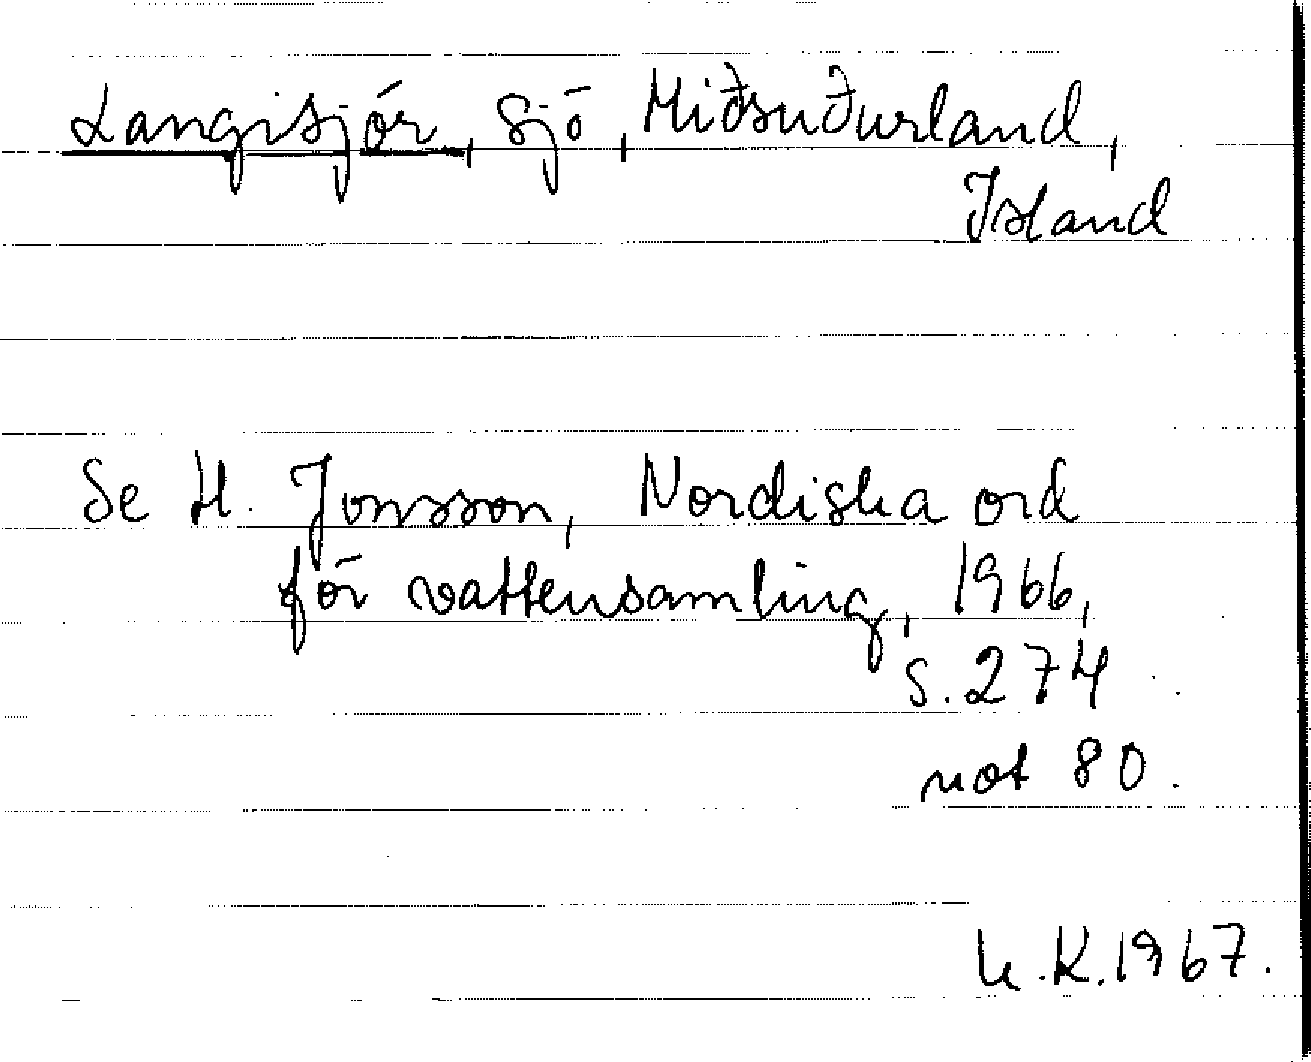 Langisjór, sjö, Miðsuðurland,
Island
Se H. Jonsson, Nordiska ord
för vattensamling, 1966,
s. 274
not 80.
K.1967.